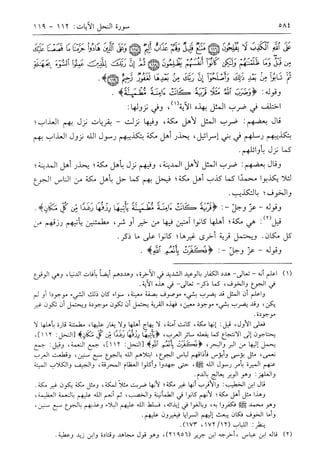 ٥٨٤ سورة النحل الآيات: ١١٢ - ١١٩
عَلَى اللَّهِ الْكَذِبَ لَا يُفْلِحُونَ ﴿١١٦﴾ مَتَاعٌ قَلِيلٌ وَلَهُمْ عَذَابٌ أَلِيمٌ ﴿١١٧﴾ وَعَلَى الَّذِينَ هَادُوا حَرَّمْنَا مَا قَصَصْنَا عَلَيْكَ
مِن قَبْلُ وَمَا ظَلَمْنَاهُمْ وَلَكِن كَانُوا أَنفُسَهُمْ يَظْلِمُونَ ﴿١١٨﴾ ثُمَّ إِنَّ رَبَّكَ لِلَّذِينَ عَمِلُوا السُّوءَ بِجَهَالَةٍ
ثُمَّ تَابُوا مِن بَعْدِ ذَلِكَ وَأَصْلَحُوا إِنَّ رَبَّكَ مِن بَعْدِهَا لَغَفُورٌ رَّحِيمٌ ﴿١١٩﴾
وقوله: ﴿وَضَرَبَ اللَّهُ مَثَلًا قَرْيَةً كَانَتْ ءَامِنَةً مُّطْمَئِنَّةً﴾.
اختلف في ضرب المثل بهذه الآية(١)، وفي نزولها:
قال بعضهم: ضرب المثل لأهل مكة، وفيها نزلت - بقريات نزل بهم العذاب؛
بتكذيبهم رسلهم في بني إسرائيل، يحذر أهل مكة بتكذيبهم رسول الله نزول العذاب بهم
كما نزل بأوائلهم.
وقال بعضهم: ضرب المثل لأهل المدينة، وفيهم نزل بأهل مكة؛ يحذر أهل المدينة؛
لئلا يكذبوا محمدًا كما كذب أهل مكة؛ فيحل بهم كما حل بأهل مكة من الناس الجوع
والخوف؛ بالتكذيب.
وقوله - عز وجل -: ﴿كَانَتْ ءَامِنَةً مُّطْمَئِنَّةً يَأْتِيهَا رِزْقُهَا رَغَدًا مِّن كُلِّ مَكَانٍ﴾.
قيل(٢): هي مكة؛ أهلها كانوا آمنين فيها من خير أو شر، مطمئنين يأتيهم رزقهم من
كل مكان. ويحتمل قرية أخرى غيرها؛ كانوا على ما ذكر.
وقوله - عز وجل -: ﴿فَكَفَرَتْ بِأَنْعُمِ اللَّهِ﴾.
(١) اعلم أنه - تعالى - هدد الكفار بالوعيد الشديد في الآخرة، وهددهم أيضاً بآفات الدنيا، وهي الوقوع
في الجوع والخوف، كما ذكر - تعالى - في هذه الآية.
واعلم أن المثل قد يضرب بشيء موصوف بصفة معينة، سواء كان ذلك الشيء موجودا أو لم
يكن، وقد يضرب بشيء موجود معين، فهذه القرية يحتمل أن تكون موجودة ويحتمل أن تكون غير
موجودة.
فعلى الأول، قيل: إنها مكة، كانت آمنة، لا يهاج أهلها ولا يغار عليها، مطمئنة قارة بأهلها لا
يحتاجون إلى الانتجاع كما يفعله سائر العرب، ﴿يَأْتِيهَا رِزْقُهَا رَغَدًا مِّن كُلِّ مَكَانٍ﴾ [النحل: ١١٢]،
يحمل إليها من البر والبحر، ﴿فَكَفَرَتْ بِأَنْعُمِ اللَّهِ﴾ [النحل: ١١٢]، جمع النعمة، وقيل: جمع
نعمى، مثل بؤسى وأبؤس فأذاقهم لباس الجوع، ابتلاهم الله بالجوع سبع سنين، وقطعت العرب
عنهم الميرة بأمر رسول الله ﷺ، حتى جهدوا وأكلوا العظام المحرقة، والجيف والكلاب الميتة
والعلهز: وهو الوبر يعالج بالدم.
قال ابن الخطيب: والأقرب أنها غير مكة؛ لأنها ضربت مثلاً لمكة، ومثل مكة يكون غير مكة.
وهذا مثل أهل مكة؛ لأنهم كانوا في الطمأنينة والخصب، ثم أنعم الله عليهم بالنعمة العظيمة،
وهو محمد ﷺ فكفروا به، وبالغوا في إيذائه، فسلط الله عليهم البلاء وعذبهم بالجوع سبع سنين،
وأما الخوف فكان يبعث إليهم السرايا فيغيرون عليهم.
ينظر: اللباب (١٢/ ١٧٢، ١٧٣).
(٢) قاله ابن عباس، أخرجه ابن جرير (٢١٩٥٦)، وهو قول مجاهد وقتادة وابن زيد وعطية.